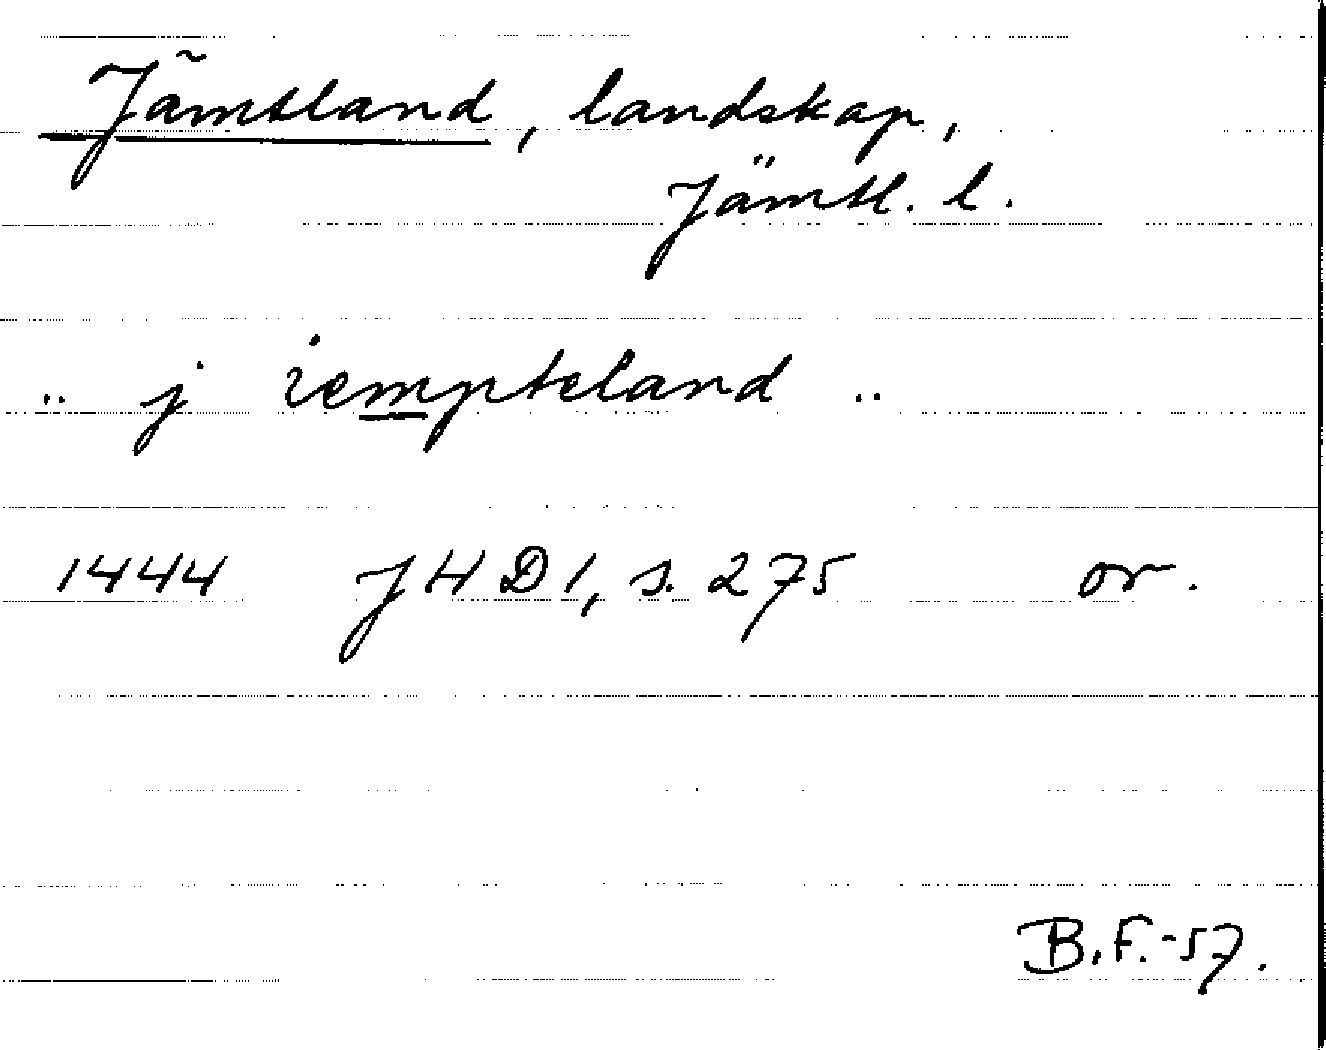 Jämtland, landskap,
Jämtl. l.
.. j iempteland ..
1444 JHD 1, s. 275 or.
B.F.-57.